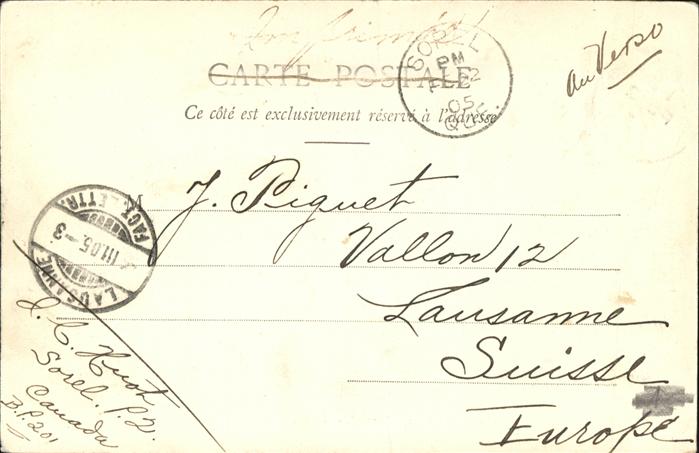 Imprimé
au Verso
SOREL
PM
FE 2
05
QUE.
CARTE POSTALE
Ce côté est exclusivement réservé à l'adresse
M J. Piguet
Vallon 12
Lausanne
Suisse
Europe
LAUSANNE
III.05.-3
FACT. LETTR.
Sorel. P.Q.
Canada
B.P. 201